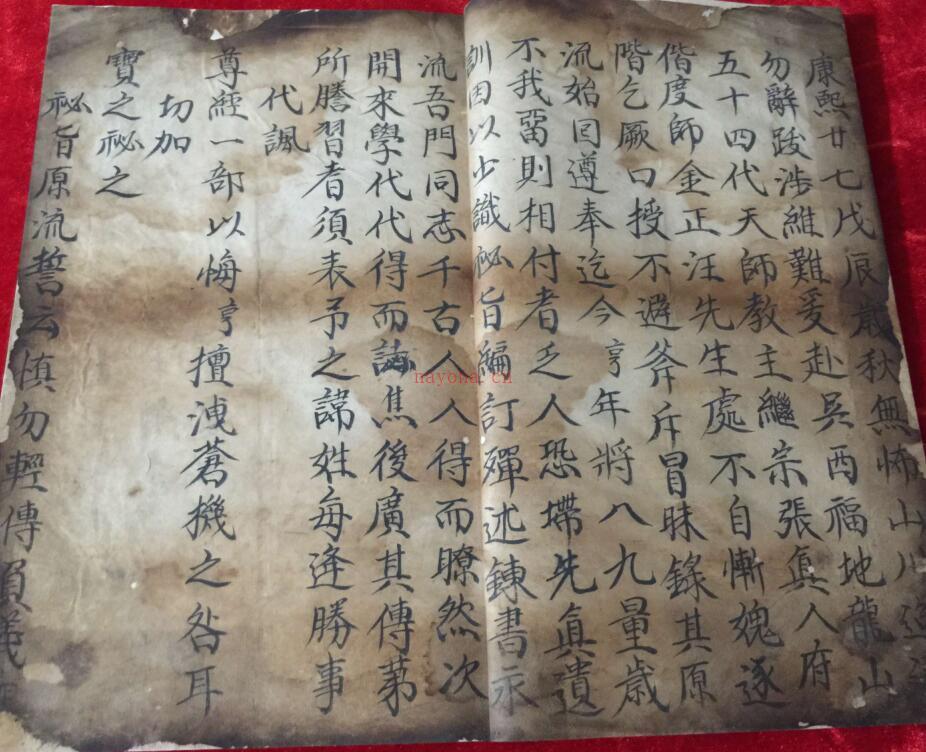 康熙廿七戊辰歲秋無怖山川
勿辭跋涉維難爰赴吳西福地龍山
五十四代天師教主繼宗張真人府
偕度師金正汪先生處不自慚媿逐
階乞厥口授不避斧斥冒昧錄其原
流始囙遵奉迄今亨年將八九量歲
不我畱則相付者乏人恐墆先真遺
訓因以少識祕旨編訂殫述鍊書示
流吾門同志千古人人得而瞭然次
開來學代代得而誌焦後廣其傳苐
所謄習者須表予之諱姓每逢勝事
代諷
尊經一部以悔亨擅洩蒼機之咎耳
切加
寶之祕之
祕旨原流誓云慎勿輕傳
nayona.cn